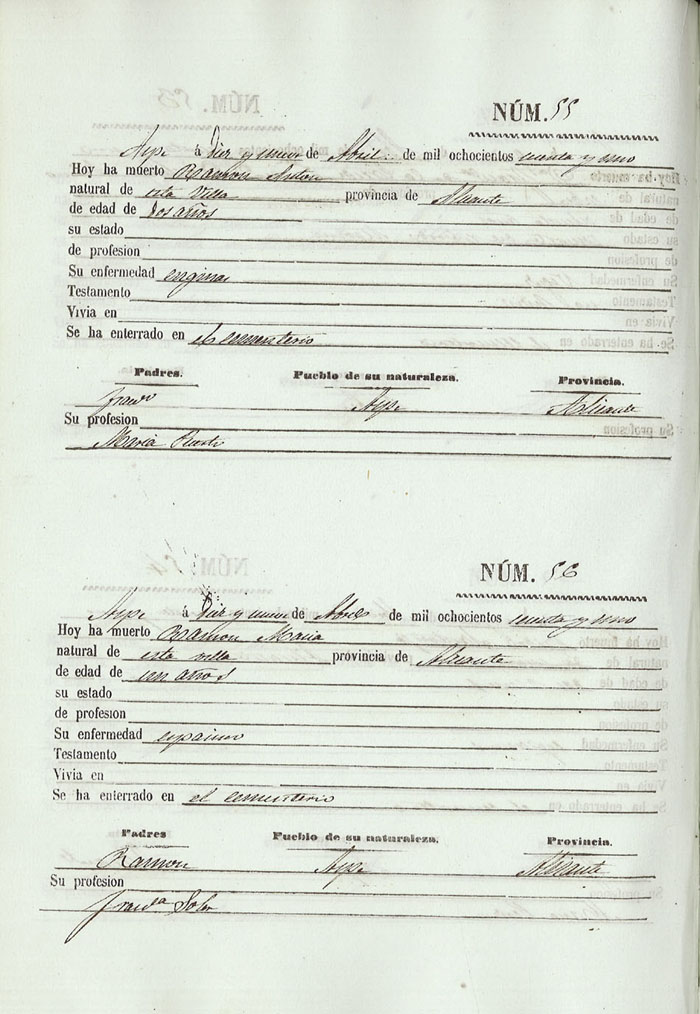 NÚM. 55
Aspe á Diez y nueve de Abril de mil ochocientos
Hoy ha muerto Ramon Anton
natural de esta Villa provincia de Alicante
de edad de dos años
su estado
de profesion
Su enfermedad anginas
Testamento
Vivia en
Se ha enterrado en el cementerio
Padres. Pueblo de su naturaleza. Provincia.
Aspe Alicante
Su profesion
Maria
NÚM. 56
Aspe á Diez y nueve de Abril de mil ochocientos
Hoy ha muerto Ramon Maria
natural de esta villa provincia de Alicante
de edad de un años
su estado
de profesion
Su enfermedad
Testamento
Vivia en
Se ha enterrado en el cementerio
Padres Pueblo de su naturaleza. Provincia.
Ramon Aspe Alicante
Su profesion
Soler